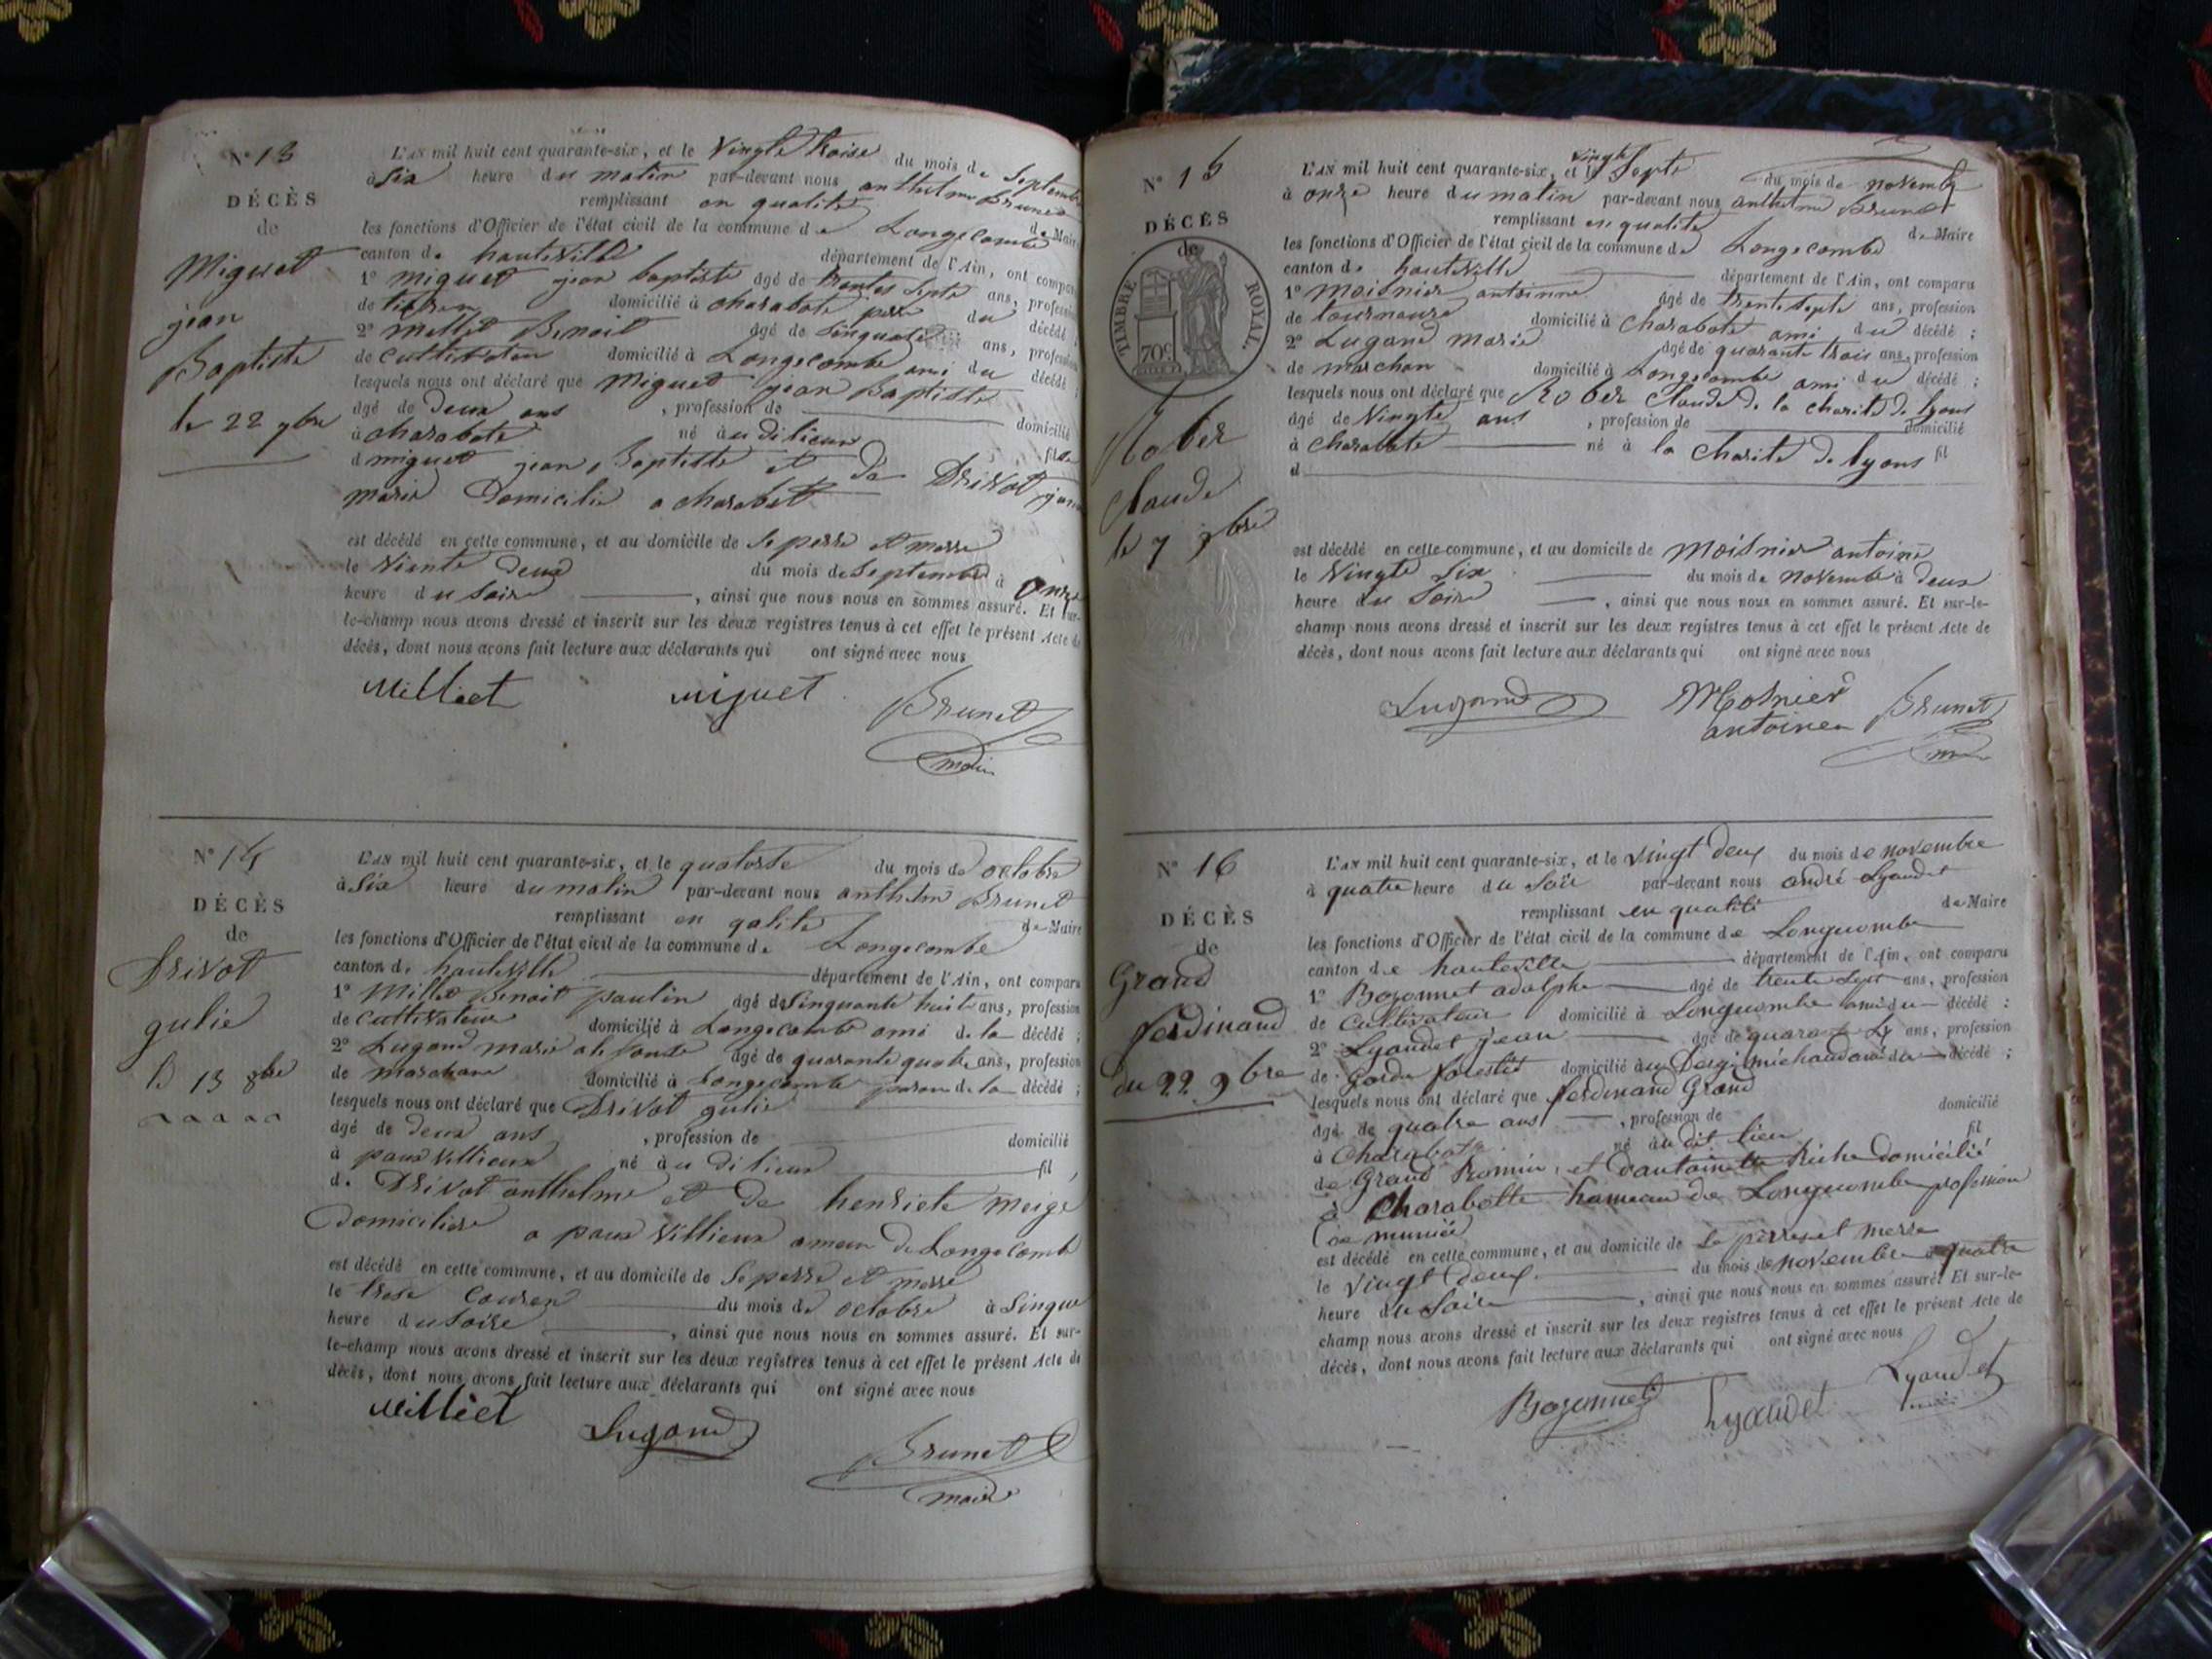 N° 13
DÉCÈS
de
Miguet
jean
Baptiste
le 22 7bre
L'AN mil huit cent quarante-six, et le Vingte troise du mois de Septembre
à Six heure du matin par-devant nous anthelme Brunet
remplissant en qualité de Maire
les fonctions d'Officier de l'état civil de la commune de Longecombe
canton de hauteville département de l'Ain, ont comparu
1° Miguet jean baptiste âgé de trentes Septe ans, profession
de domicilié à charabote perre du décédé ;
2° Millet Benoit âgé de Sinquate ans, profession
de Cultivateu domicilié à Longecombe ami du décédé ;
lesquels nous ont déclaré que Miguet jean Baptiste
âgé de deux ans , profession de domicilié
à charabote né àu di lieux fils
d miguet jean Baptiste et de Drivot jane
marie Domicilie a charabott
est décédé en cette commune, et au domicile de Se perre et merre
le Viente deux du mois de Septembre à onze
heure du Soire , ainsi que nous nous en sommes assuré. Et sur-
le-champ nous avons dressé et inscrit sur les deux registres tenus à cet effet le présent Acte de
décès, dont nous avons fait lecture aux déclarants qui ont signé avec nous
Milliet miguet Brunet
maire
N° 14
DÉCÈS
de
Drivot
gulie
le 13 8bre
L'AN mil huit cent quarante-six, et le quatorse du mois de octobre
à Six heure du matin par-devant nous anthelme Brunet
remplissant en qalite de Maire
les fonctions d'Officier de l'état civil de la commune de Longecombe
canton de hauteville département de l'Ain, ont comparu
1° Millet Benoit paulin âgé de Sinquante huit ans, profession
de Cultivateur domicilié à Longecombe ami de la décédé ;
2° Lugand marie âgé de quarante quatre ans, profession
de marchan domicilié à Longecombe paran de la décédé ;
lesquels nous ont déclaré que Drivot gulie
âgé de deux ans , profession de domicilié
à paux Villieux né àu di lieux fil
de Drivot anthelme et de henriete meige
Domicilier a paux Villieux amau de Longecomb
est décédé en cette commune, et au domicile de Se perre et merre
le trese Couren du mois de octobre à Sinque
heure du Soire , ainsi que nous nous en sommes assuré. Et sur-
le-champ nous avons dressé et inscrit sur les deux registres tenus à cet effet le présent Acte de
décès, dont nous avons fait lecture aux déclarants qui ont signé avec nous
Milliet Lugand Brunet
maire
N° 15
DÉCÈS
de
TIMBRE ROYAL.
70c
Rober
Claude
le 7 9bre
L'AN mil huit cent quarante-six, et le vingte Septe du mois de novembre
à onze heure du matin par-devant nous anthelme Brunet
remplissant en qualité de Maire
les fonctions d'Officier de l'état civil de la commune de Longecombe
canton de hauteville département de l'Ain, ont comparu
1° Moisnier antoinne âgé de trente Septe ans, profession
de tourneure domicilié à Charabote ami du décédé ;
2° Lugand marie âgé de quarante trois ans, profession
de marchan domicilié à Longecombe ami du décédé ;
lesquels nous ont déclaré que Rober Claude de la charité de lyons
âgé de Vingte ans , profession de domicilié
à Charabote né à la Charité de lyons fil
d
est décédé en cette commune, et au domicile de Moisnier antoine
le Vingte Six du mois de novembre à deux
heure du Soire , ainsi que nous nous en sommes assuré. Et sur-le-
champ nous avons dressé et inscrit sur les deux registres tenus à cet effet le présent Acte de
décès, dont nous avons fait lecture aux déclarants qui ont signé avec nous
Lugand Moinier Brunet
antoinen
N° 16
DÉCÈS
de
Grand
ferdinand
du 22 9bre
L'AN mil huit cent quarante-six, et le vingt deux du mois de novembre
à quatre heure du Soir par-devant nous andré Lyaudet
remplissant en qualité de Maire
les fonctions d'Officier de l'état civil de la commune de Longecombe
canton de hauteville département de l'Ain, ont comparu
1° Bozonnet adolphe âgé de trente Sept ans, profession
de Cultivateur domicilié à Longecombe ami du décédé ;
2° Lyaudet jean âgé de ans, profession
de garde forestié domicilié au du décédé ;
lesquels nous ont déclaré que ferdinand Grand
âgé de quatre ans , profession de domicilié
à Charabotte né àu dit lieu fil
de Grand Romin, et d'antoinette Riche domicilié
à Charabotte hameau de Longecombe profession
de
est décédé en cette commune, et au domicile de Se perre et merre
le vingt deux du mois de novembre à quatre
heure du Soire , ainsi que nous nous en sommes assuré. Et sur-le-
champ nous avons dressé et inscrit sur les deux registres tenus à cet effet le présent Acte de
décès, dont nous avons fait lecture aux déclarants qui ont signé avec nous
Bozonnet Lyaudet Lyaudet